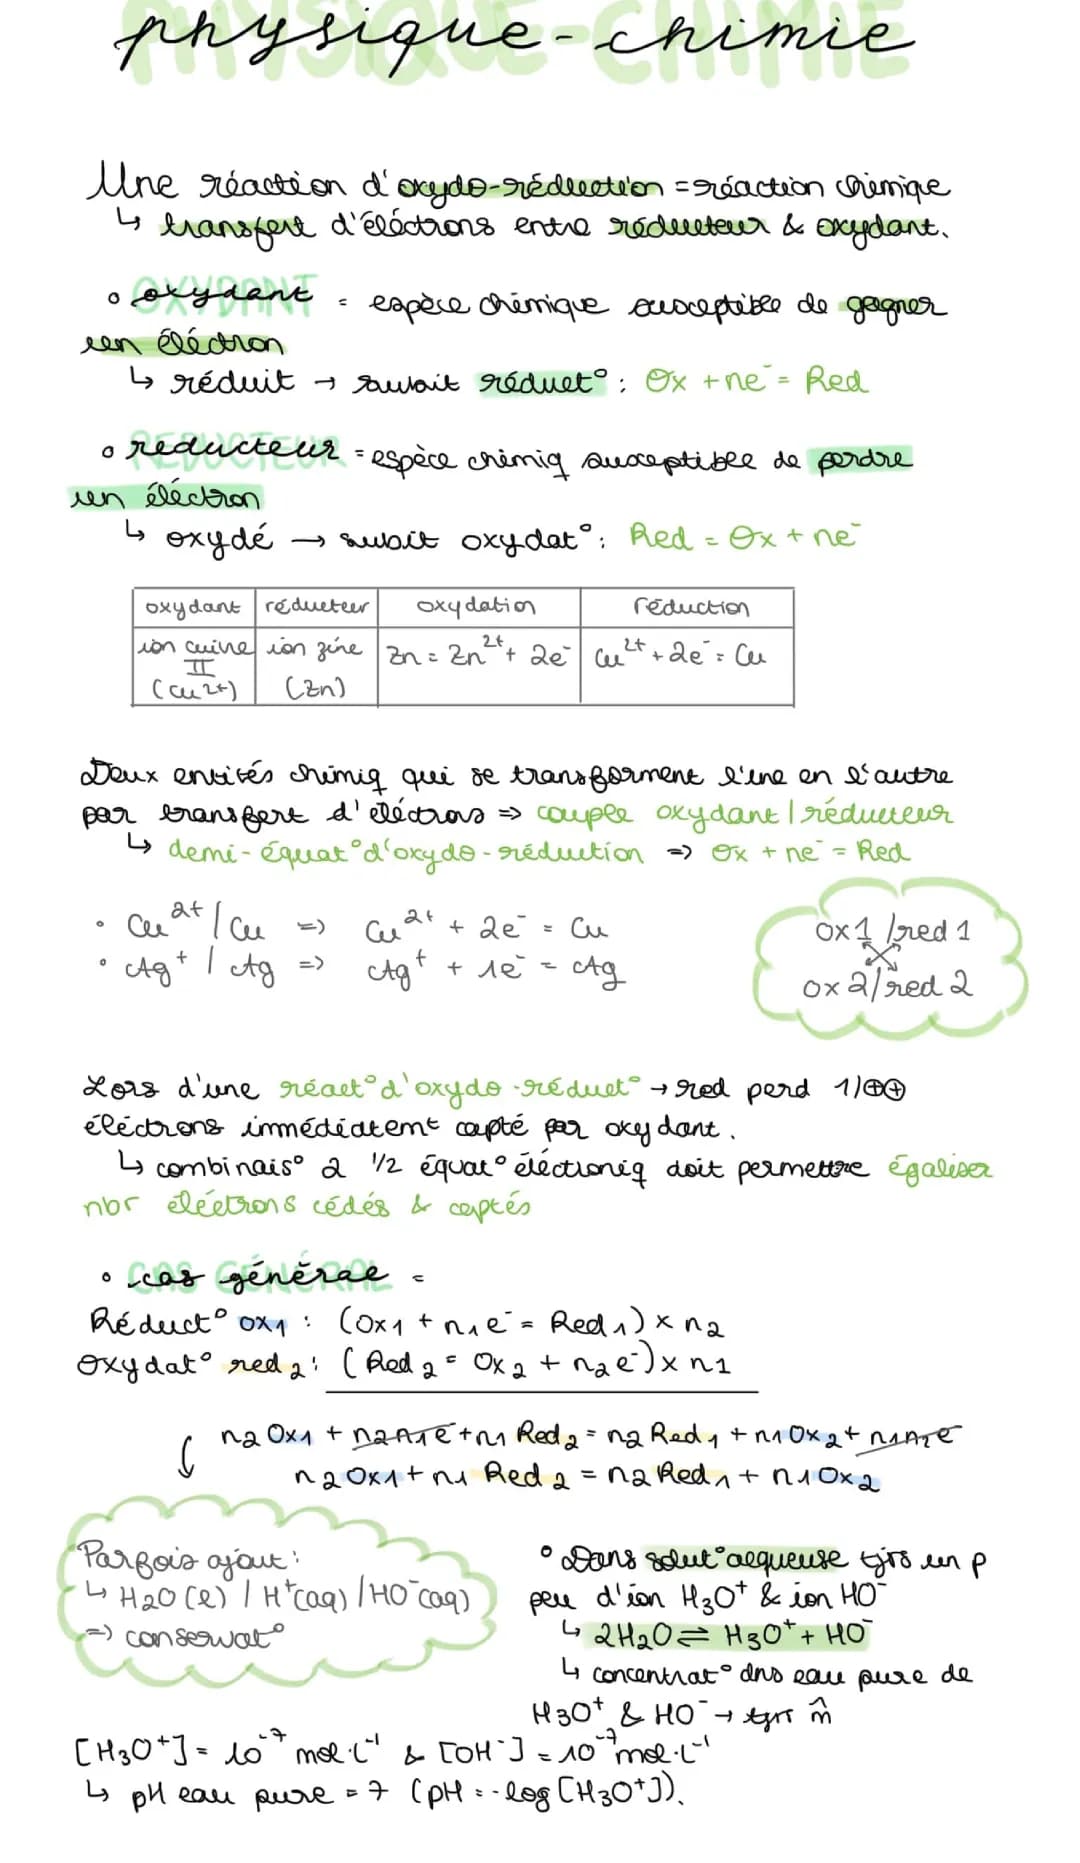 physique-chimie
Une réaction d'oxydo-réduction = réaction chimique
↳ transfert d'éléctrons entre réducteur & oxydant.
° oxydant = espèce chimique susceptible de gagner
un éléctron
↳ réduit → subit réduct° : Ox + ne⁻ = Red
° reducteur = espèce chimiq susceptible de perdre
un éléctron
↳ oxydé → subit oxydat° : Red = Ox + ne⁻
oxydant réducteur oxydation réduction
ion cuivre II (Cu²⁺) ion zinc (Zn) Zn = Zn²⁺ + 2e⁻ Cu²⁺ + 2e⁻ = Cu
Deux entités chimiq qui se transforment l'une en l'autre
par transfert d'eléctrons => couple oxydant / réducteur
↳ demi-équat° d'oxydo-réduction => Ox + ne⁻ = Red
° Cu²⁺ / Cu => Cu²⁺ + 2e⁻ = Cu
° Ag⁺ / Ag => Ag⁺ + 1e⁻ = Ag
ox1 / red 1
ox 2 / red 2
Lors d'une réact° d'oxydo-réduct° → red perd 1/⊕⊕
éléctrons immédiatemt capté par oxydant.
↳ combinais° 2 1/2 équat° éléctroniq doit permettre égaliser
nbr eléctrons cédés & captés
° cas général =
Réduct° ox₁ : (Ox₁ + n₁e⁻ = Red₁) × n₂
Oxydat° red₂ : (Red₂ = Ox₂ + n₂e⁻) × n₁
n₂Ox₁ + n₂n₁e⁻ + n₁ Red₂ = n₂ Red₁ + n₁Ox₂ + n₁n₂e⁻
n₂Ox₁ + n₁ Red₂ = n₂ Red₁ + n₁Ox₂
Parfois ajout :
↳ H₂O (l) / H⁺(aq) / HO⁻(aq)
=> conservat°
° Dans solut° aqueuse tjrs un p
peu d'ion H₃O⁺ & ion HO⁻
↳ 2H₂O ⇌ H₃O⁺ + HO⁻
↳ concentrat° dns eau pure de
H₃O⁺ & HO⁻ → tjrs m̂
[H₃O⁺] = 10⁻⁷ mol·L⁻¹ & [OH⁻] = 10⁻⁷ mol·L⁻¹
↳ pH eau pure = 7 (pH = -log [H₃O⁺]).